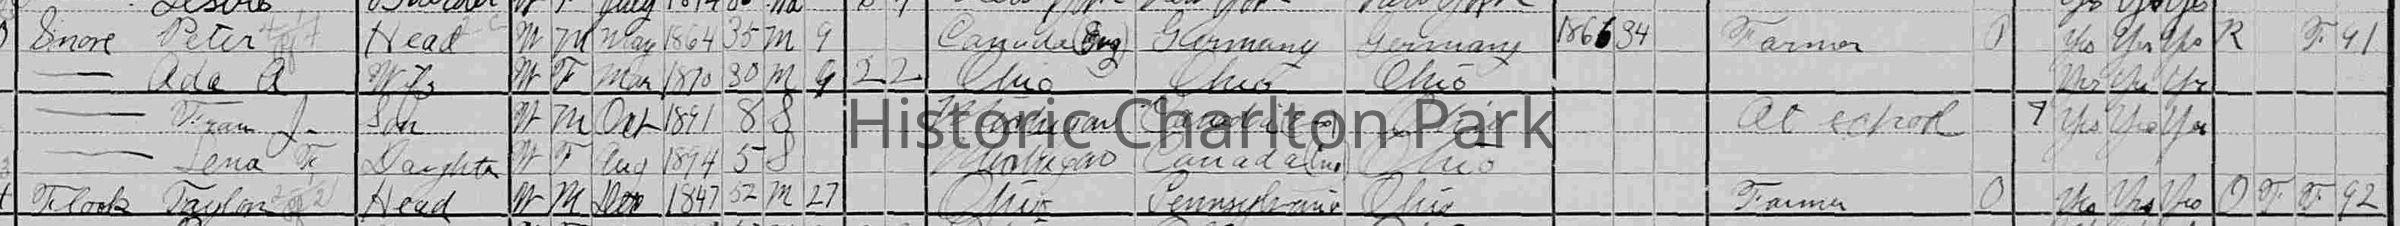 Snore Peter Head W M May 1864 35 M 9 Canada (Eng) Germany Germany 1866 34 Farmer 0 Yes Yes Yes R F 91
— Ada A Wife W F Mar 1870 30 M 9 2 2 Ohio Ohio Ohio Yes Yes Yes
— Fran J Son W M Oct 1891 8 S Michigan Canada Ohio At school 7 Yes Yes Yes
— Lena F Daughter W F Aug 1894 5 S Michigan Canada Ohio
Flook Taylor Head W M Dec 1847 52 M 27 Ohio Pennsylvania Ohio Farmer 0 Yes Yes Yes O F F 92
Historic Charlton Park